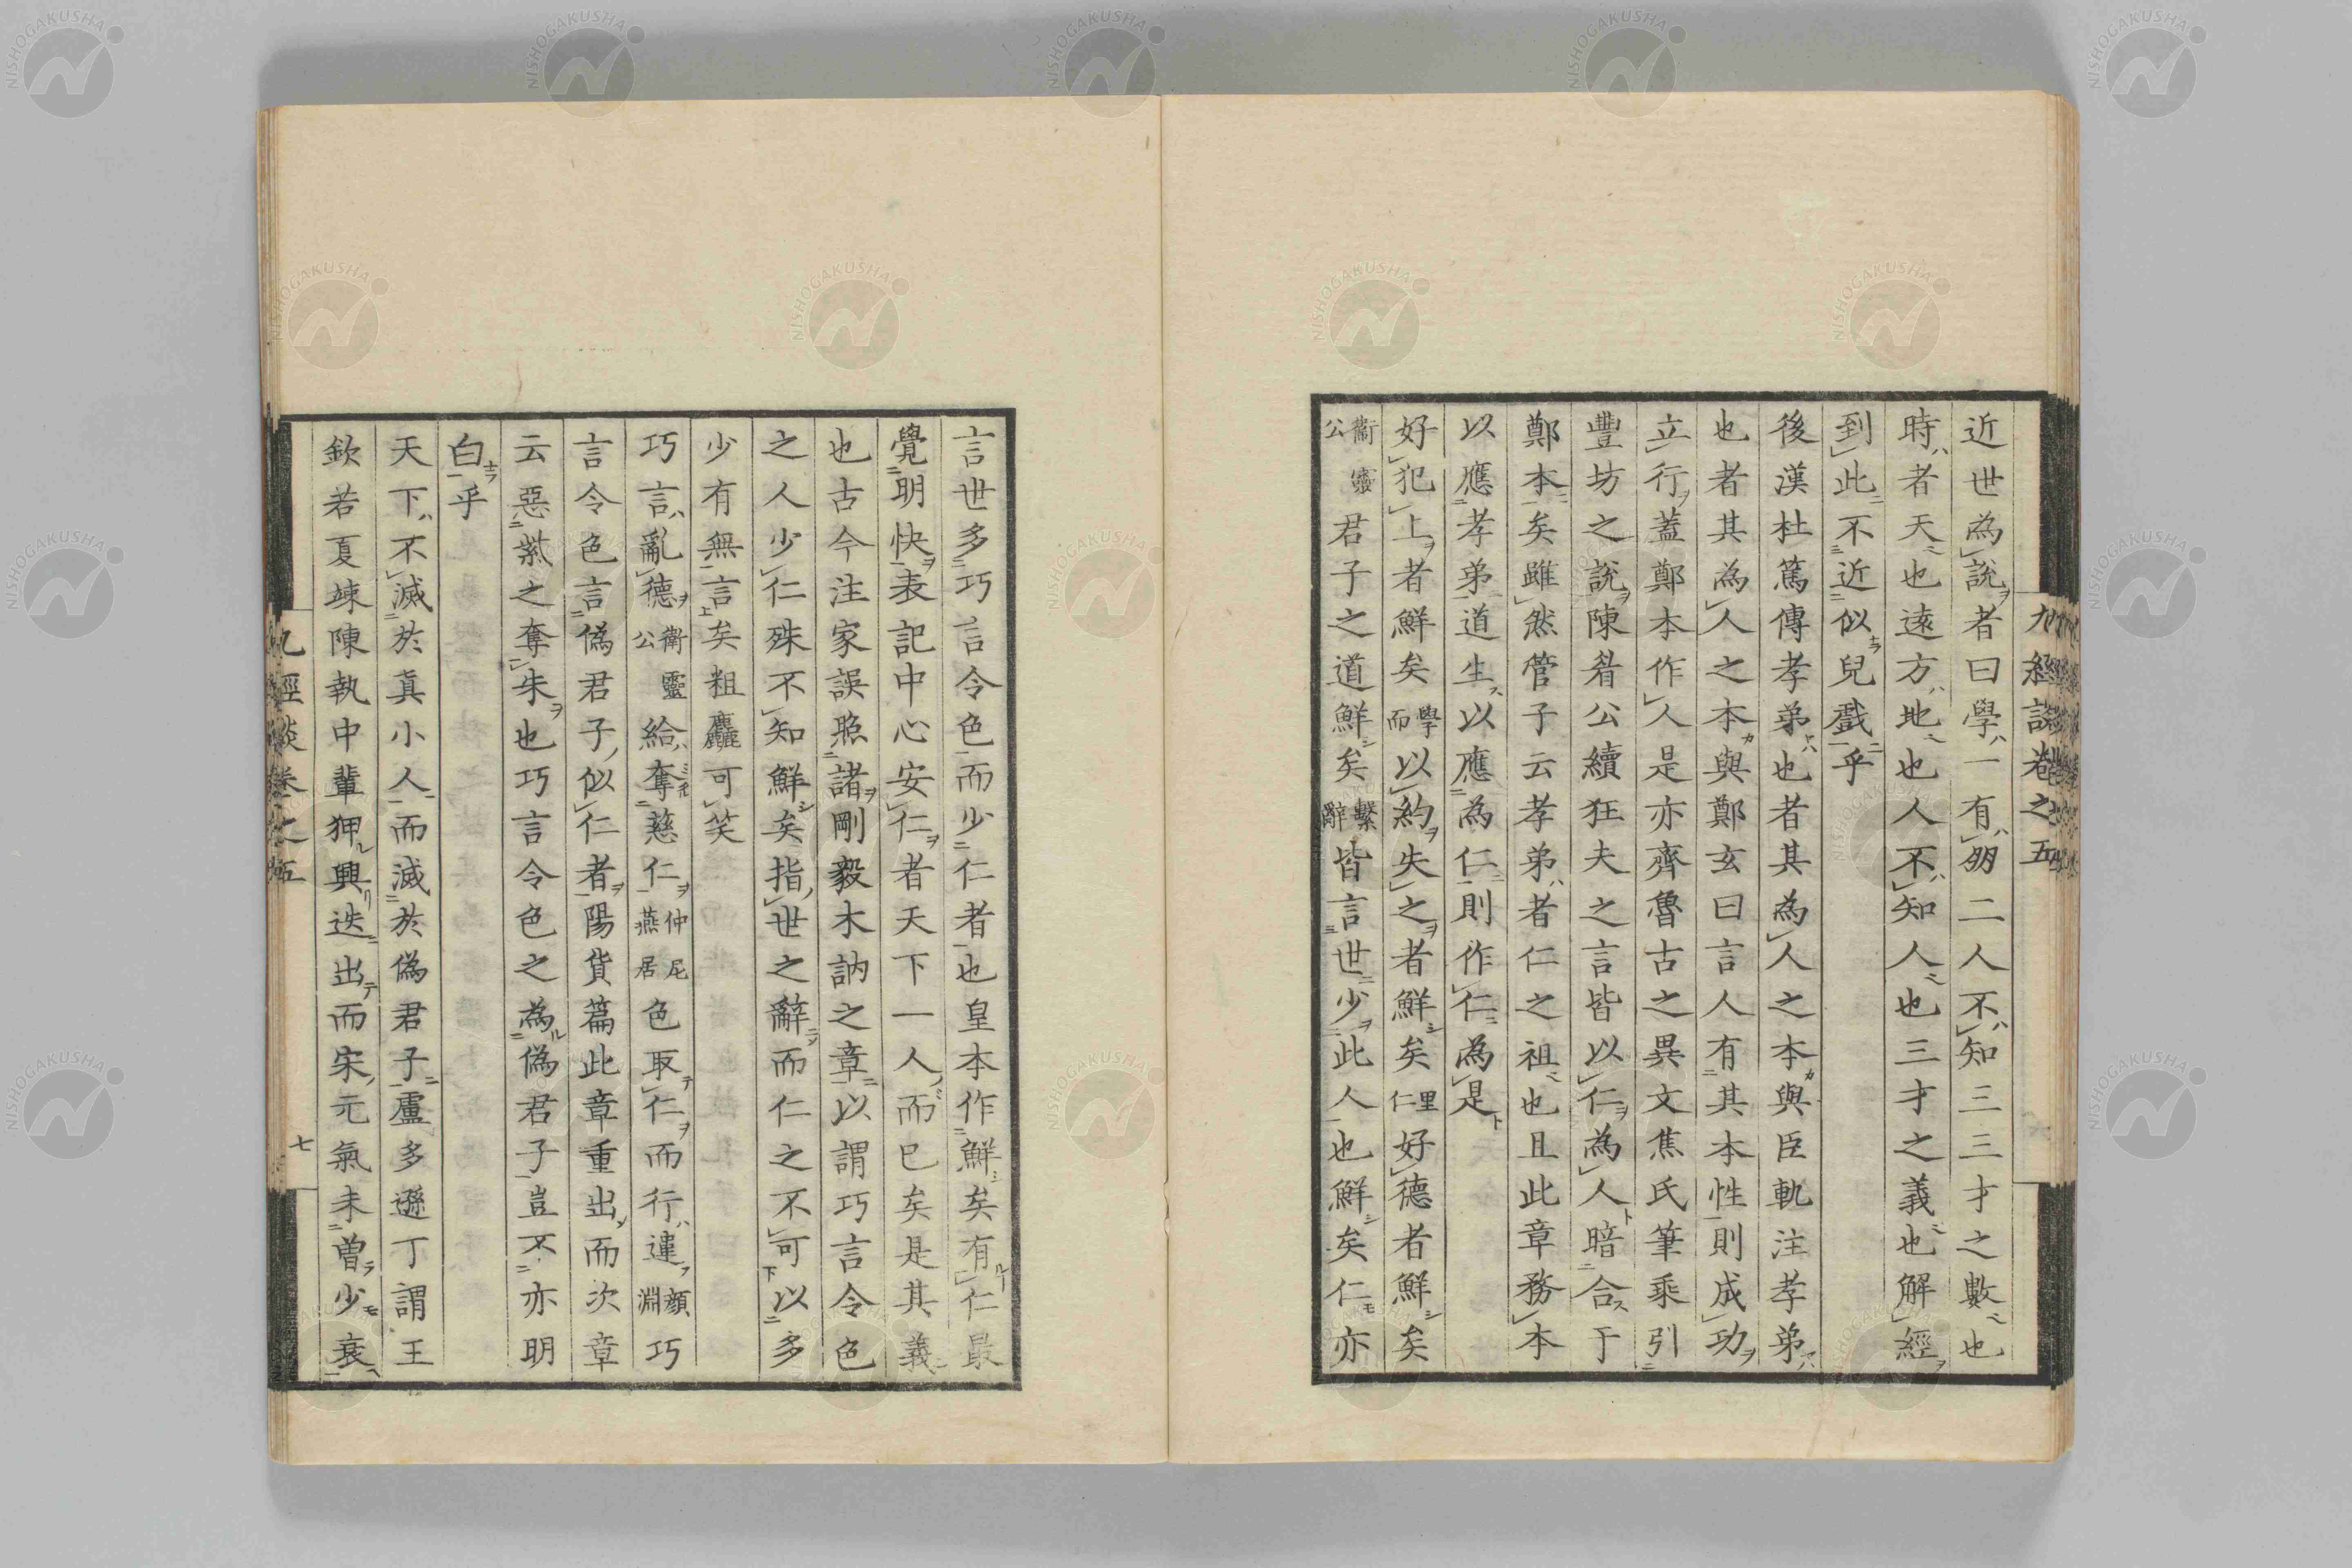 九經談卷之五
近世為說者曰學一有朋二人不知三三才之數也
時者天也遠方地也人不知人也三才之義也解經
到此不近似兒戲乎
後漢杜篤傳孝弟也者其為人之本與臣軌注孝弟
也者其為人之本與鄭玄曰言人有其本性則成功
立行蓋鄭本作人是亦齊魯古之異文焦氏筆乘引
豐坊之說陳耆公續狂夫之言皆以仁為人暗合于
鄭本矣雖然管子云孝弟者仁之祖也且此章務本
以應孝弟道生以應為仁則作仁為是
好犯上者鮮矣學而以約失之者鮮矣里仁好德者鮮矣
衞靈公君子之道鮮矣繫辭皆言世少此人也鮮矣仁亦
言世多巧言令色而少仁者也皇本作鮮矣有仁最
覺明快表記中心安仁者天下一人而已矣是其義
也古今注家誤照諸剛毅木訥之章以謂巧言令色
之人少仁殊不知鮮矣指世之辭而仁之不可以多
少有無言矣粗麤可笑
巧言亂德衞靈公給奪慈仁仲尼燕居色取仁而行違顏淵巧
言令色言偽君子似仁者陽貨篇此章重出而次章
云惡紫之奪朱也巧言令色之為偽君子豈不亦明
白乎
天下不滅於真小人而滅於偽君子盧多遜丁謂王
欽若夏竦陳執中輩狎興迭出而宋元氣未曾少衰
九經談卷之五
七